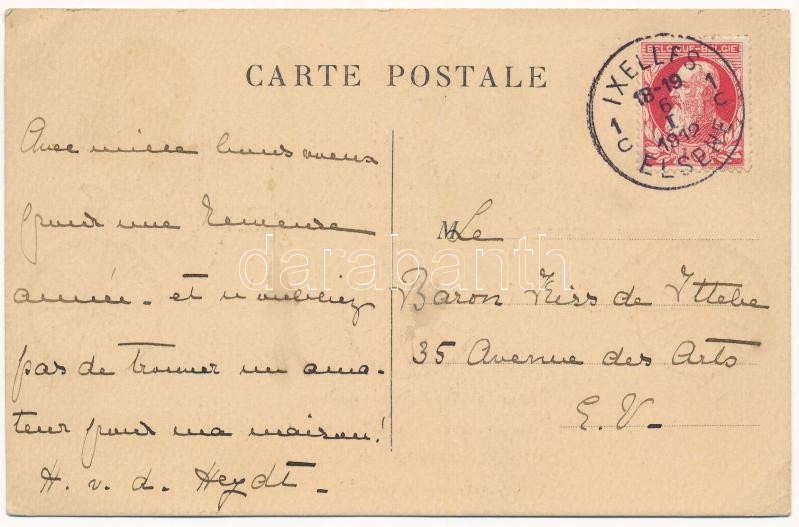 CARTE POSTALE
BELGIQUE-BELGIE
IXELLES 1C
18-19
6
I
1912
1C ELSENE
Avec mille bons vœux
pour une heureuse
année - et n'oubliez
pas de trouver un ama-
teur pour ma maison!
H. v. d. Heydt -
M Le
Baron Kiss de Ittebe
35 Avenue des Arts
E. V.
darabanth